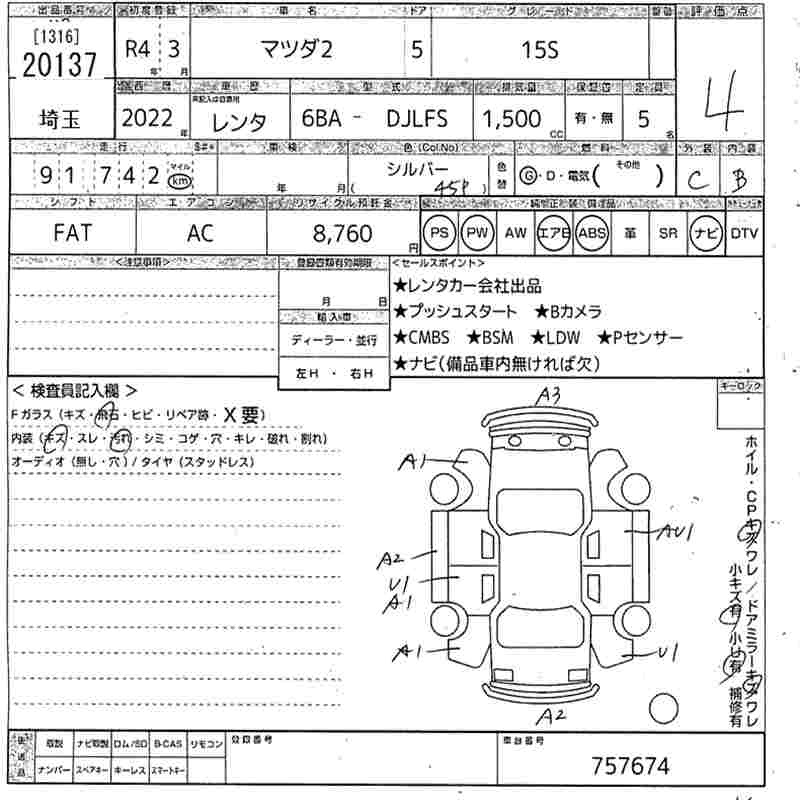 出品番号 初度登録 車名 ドア グレード 評価点
[1316]
20137 R4 年 3 月 マツダ2 5 15S 4
西暦 車歴 型式 排気量 保証書 定員
埼玉 2022 年 レンタ 6BA - DJLFS 1,500 CC 有・無 5 名
走行 車検 色(Col.No) 燃料 外装 内装
91742 マイル km 年 月 シルバー (45P) 色替 G・D・電気( その他 ) C B
シフト エアコン リサイクル預託金 純正装備品
FAT AC 8,760 円 PS PW AW エアB ABS 革 SR ナビ DTV
<注意事項> 登録書類有効期限 <セールスポイント>
月 日
輸入車
ディーラー・並行
左H ・ 右H
★レンタカー会社出品
★プッシュスタート ★Bカメラ
★CMBS ★BSM ★LDW ★Pセンサー
★ナビ(備品車内無ければ欠)
キーロック
< 検査員記入欄 >
Fガラス (キズ・飛石・ヒビ・リペア跡・X要)
内装 (キズ・スレ・汚れ・シミ・コゲ・穴・キレ・破れ・割れ)
オーディオ (無し・穴) / タイヤ (スタッドレス)
A3
A1
AU1
A2
U1
A1
A1
U1
A2
ホイル・CPキズワレ / ドアミラーキズワレ
小キズ有 小U有 補修有
後送品 取説 ナビ取説 ロム/SD B-CAS リモコン 登録番号 車台番号
ナンバー スペアキー キーレス スマートキー 757674